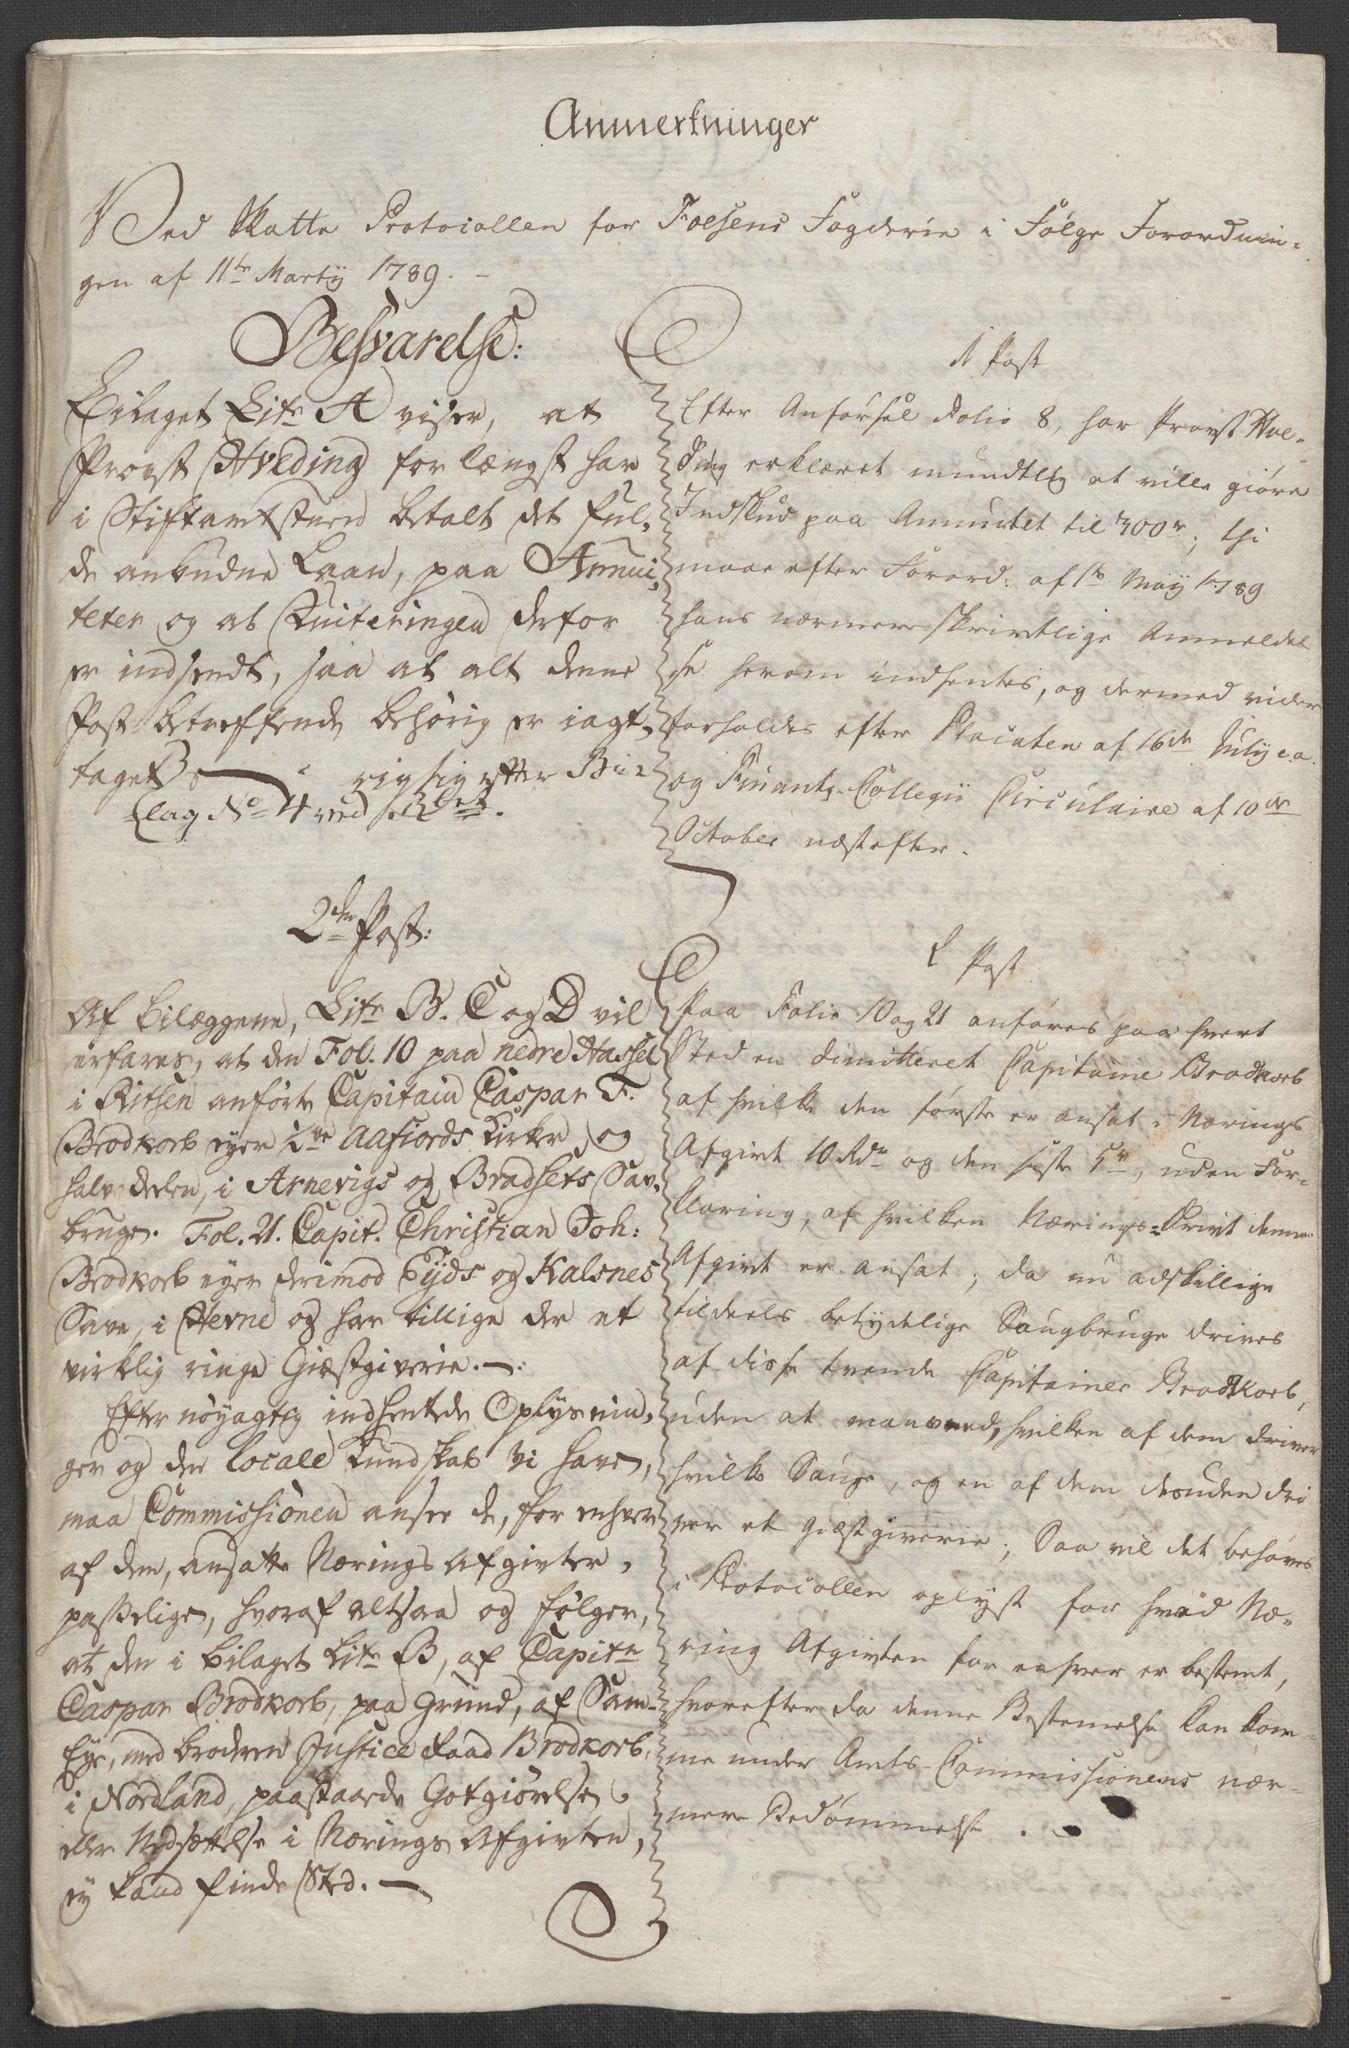 Anmerkninger
Ved Skatte Protocollen for Foesens Fogderie i Følge Forordnin-
gen af 11te Martij 1789. -
Besvarelse:
Bilaget Litr A viser, at
Provst Hveding for længst har
i Stiftamtstuen betalt det ful-
de anbudne Laan, paa Annui-
teter og at Quiteringen derfor
er indsendt, saa at alt denne
Post betreffende behørig er iagt-
taget
rigtig efter Bi-
lag No 4 ved
2den Post:
Af bilæggene, Litr B. C og D vil
erfares, at den Fol. 10 paa nedre Hassel
i Ritsen anførte Capitain Caspar F.
Brodkorb eyer Aafiords Kirke, og
halvdelen, i Arnevigs og Bradsets Sav-
bruge. Fol. 21. Capit. Christian Joh:
Brodkorb eyer derimod Eyds og Kalsnes
Save, i Herne og har tillige der et
virklig ringe Giæstgiverie. -
Efter nøyagtig indhentede Oplysnin-
ger og den locale Kundskab vi have,
maa Commissionen ansee de, for enhver
af dem, ansatte Nærings Afgivter,
passelige, hvoraf altsaa og følger,
at den i bilaget Litr B, af Capitn
Caspar Brodkorb, paa Grund, af Sam-
Eye, med broderen Justice Raad Brodkorb,
i Nordland, paastaaede Gotgiørelse
eller Nedsættelse i Nærings Afgivten,
ey kand finde Sted. -
1 Post
Efter Anførsel Folio 8, har Provst Hve-
ding erklæret mundtlig at ville giøre
Indskud paa Annuitet til 300r; thi
maae efter Forord: af 1te Maij 1789
hans nærmere skrivtlige Anmeldel-
se herom indhentes, og dermed videre
forholdes efter Placaten af 16de Julij e.a.
og Finantz-Collegii Circulaire af 10de
October næstefter.
2 Post
Paa Folio 10 og 21 anføres paa hvert
Sted en dimitteret Capitaine Brodkorb
af hvilke den første er ansat i Nærings
Afgivt 10 Rdr og den siste 5r, uden For-
klaring, af hvilken Nærings-Drivt denne
Afgivt er ansat; da nu adskillige
tildeels betydelige Saugbruge drives
af disse tvende Capitainer Brodkorb,
uden at man veed, hvilken af dem driver
hvilke Sauge, og en af dem desuden dri-
ver et Giæstgiverie; Saa vil det behøves
i Protocollen oplyst for hvad Næ-
ring Afgivten for enhver er bestemt,
hvorefter da denne Bestemelse kan kom-
me under Amts-Commissionens nær-
mere Bedømmelse.